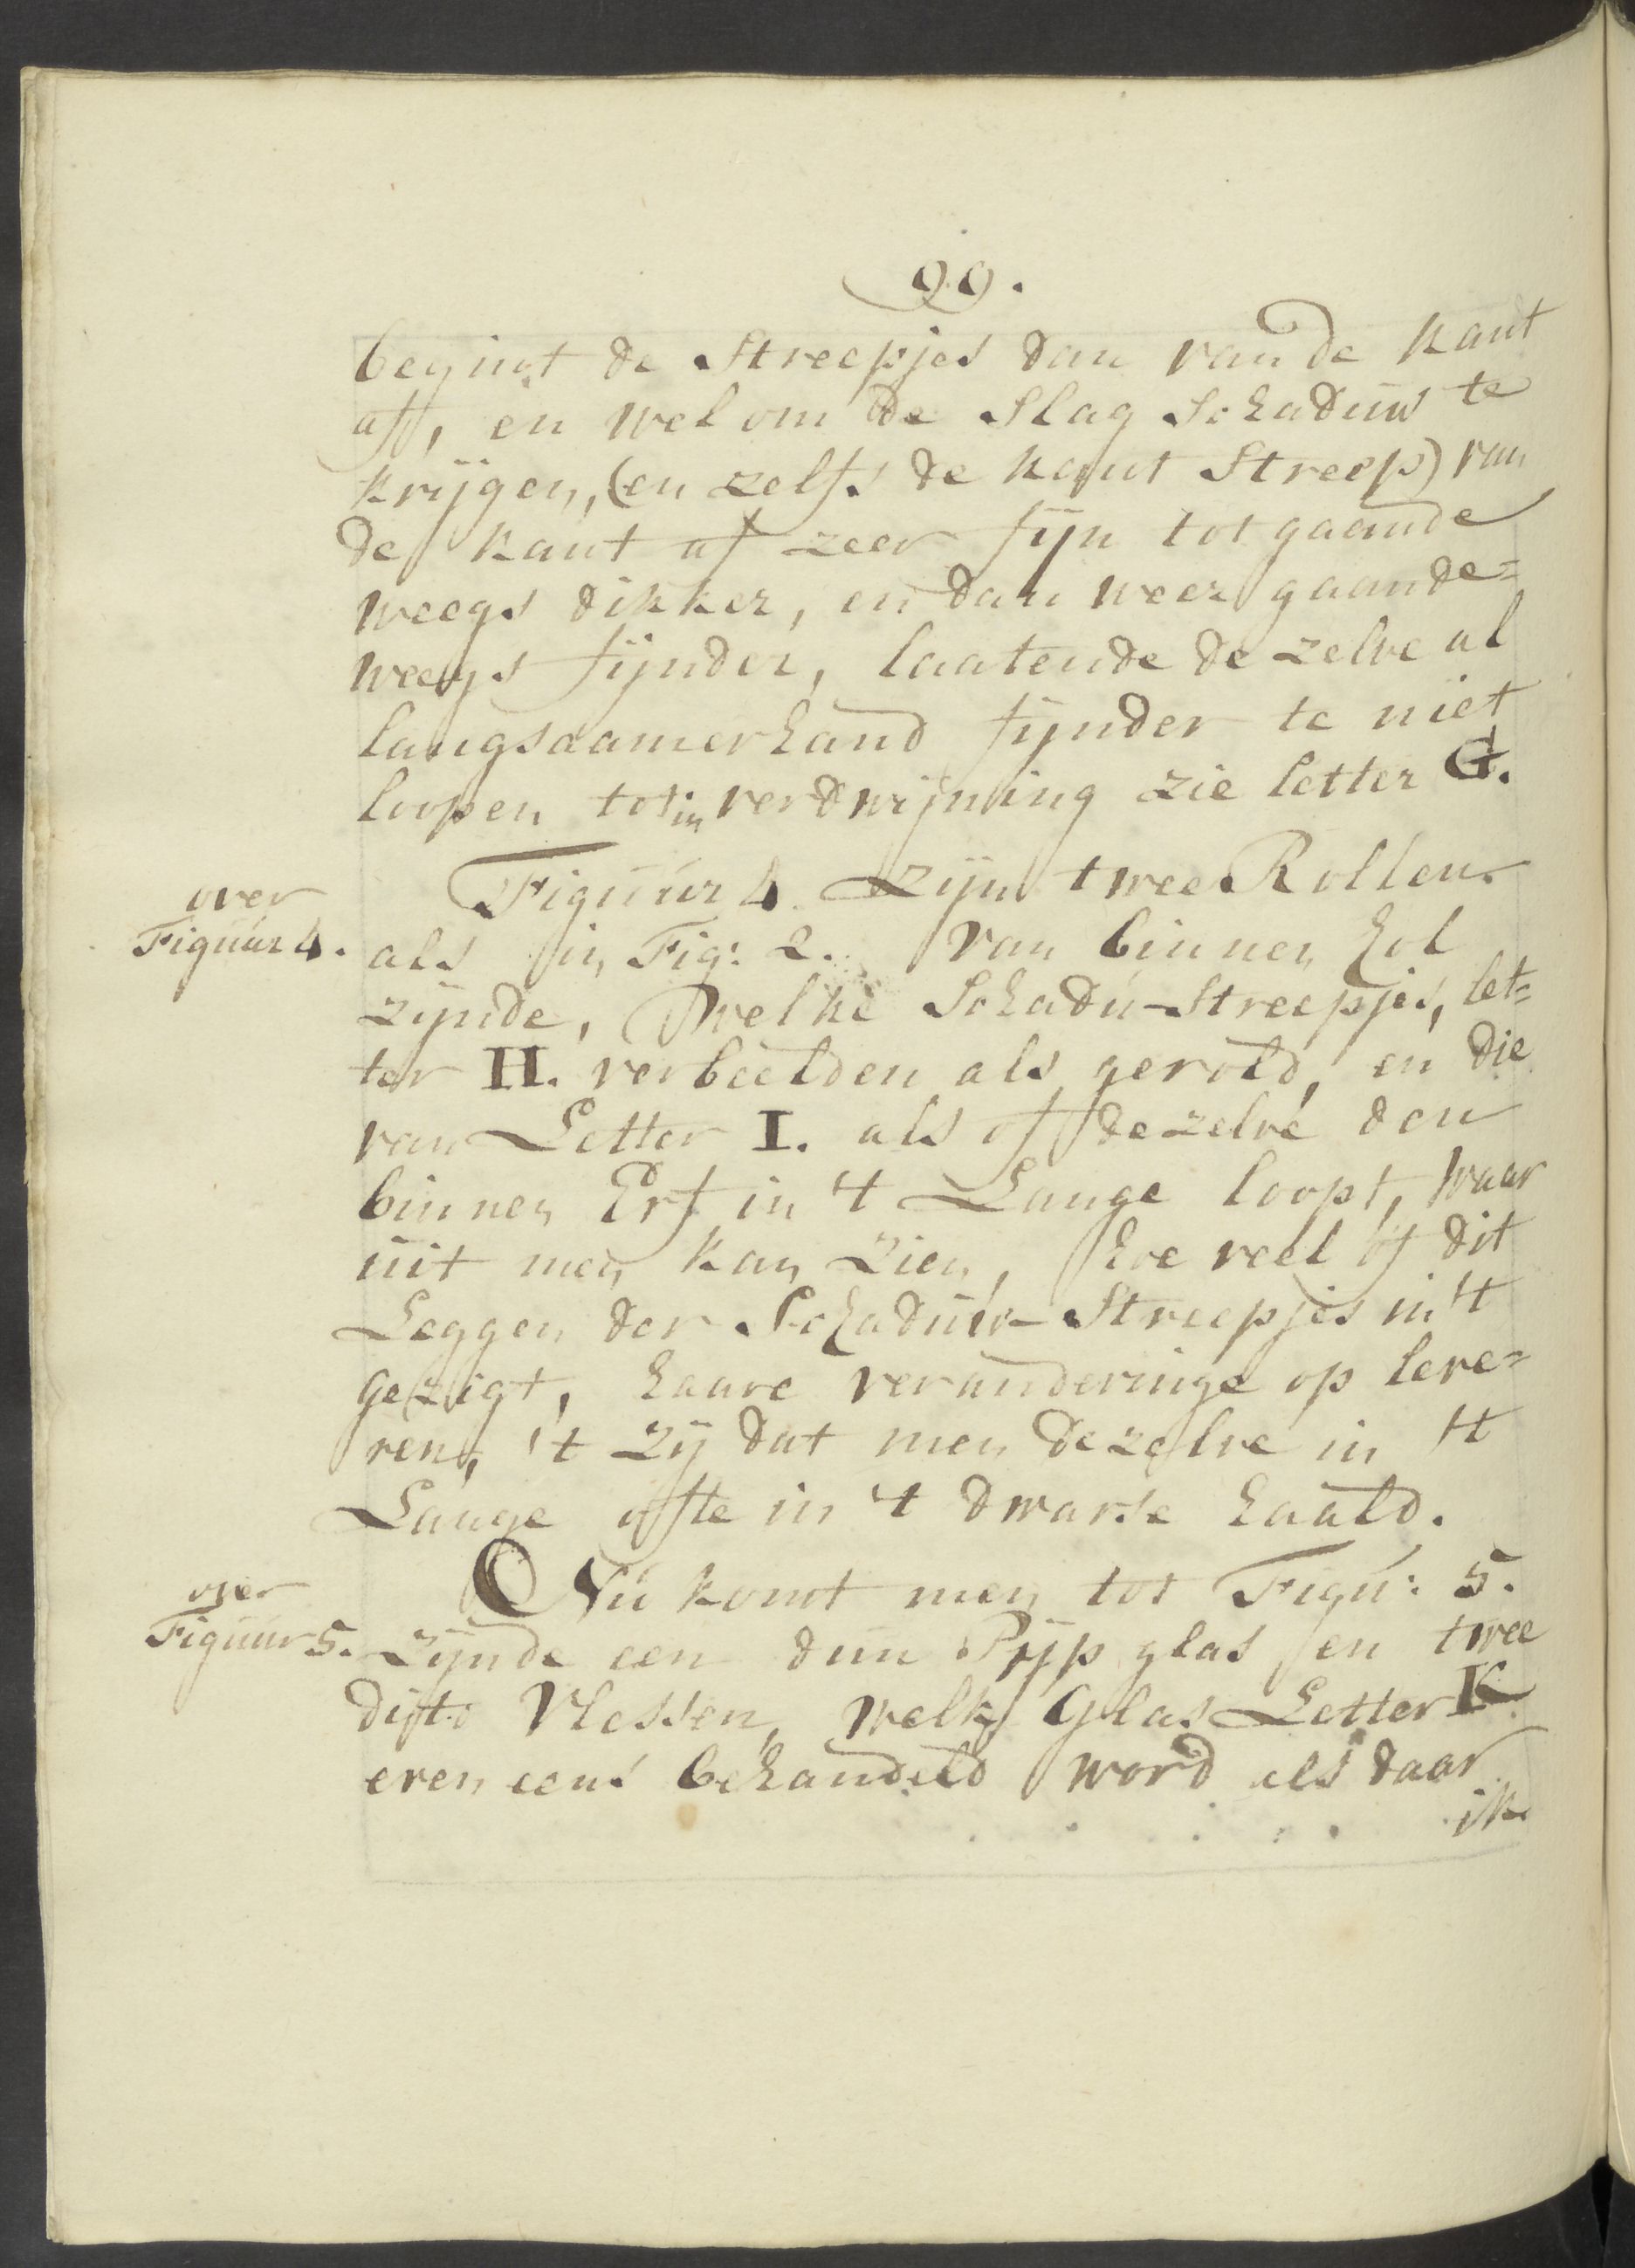 99.
begint de Streepjes dan van de kant
aff, en wel om de Slag Schaduw te
krijgen, (en zelfs de kant Streep) van
de kant af zeer fijn tot gaande
weegs dikker, en dan weer gaande=
weegs fijnder, laatende de zelve al
langsaamerhand fijnder te niet
loopen tot in verdwijning zie letter G.
over
Figuur 4.
Figuur 4 zijn twee Rollen
als in Fig: 2. van binnen hol
zijnde, welke Schadu-Streepjes, let=
ter H. verbeelden als gerold, en die
van Letter I. als of dezelve den
binnen Erf in 't Lange loopt, waar
uit men kan zien, hoe veel of dit
Leggen der Schaduw-Streepjes in 't
gezigt, haare veranderinge op leve=
ren, 't zij dat men dezelve in 't
Lange ofte in 't dwarse haald.
over
Figuur 5.
Nu komt men tot Figu: 5.
zijnde een dun Pijp glas en twee
dito Vlessen, welk Glas Letter K
even eens behandeld word als daar
ik